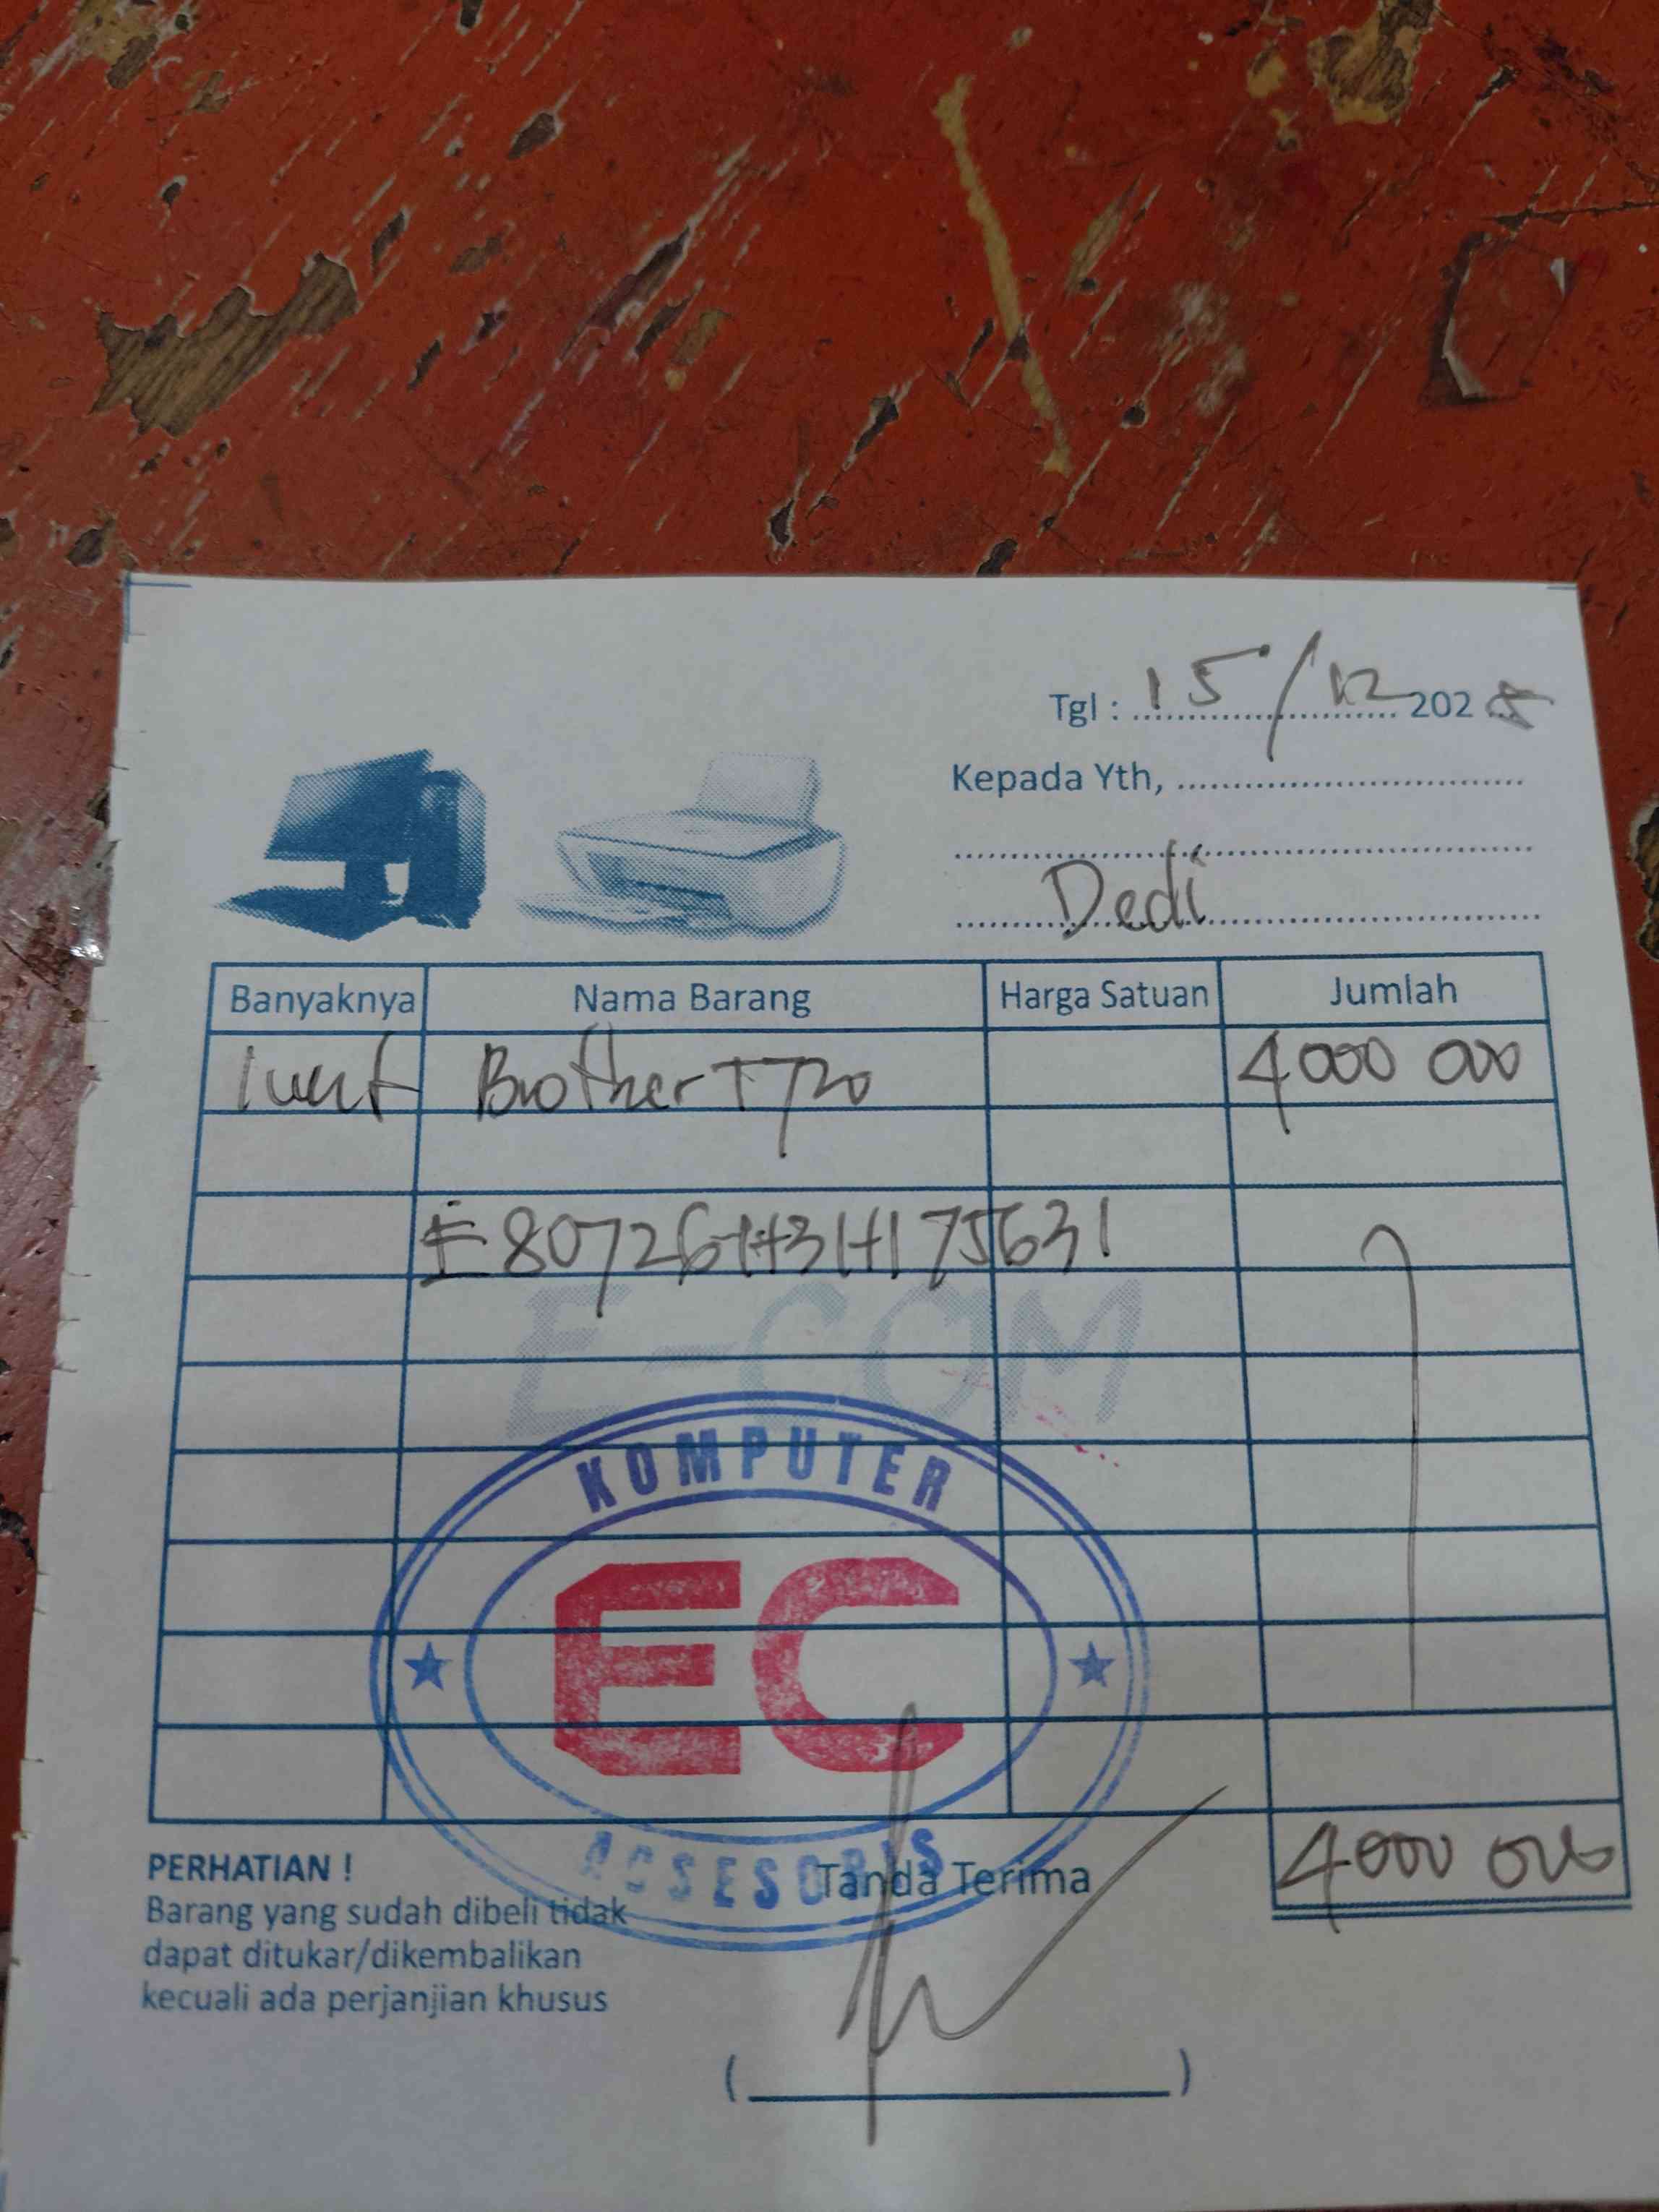 Tgl : 15/12 2025
Kepada Yth,
Dedi
Banyaknya Nama Barang Harga Satuan Jumlah
1 unit Brother T720 4000 000
E80726H3H175631
E-COM
KOMPUTER
EC
ACSESORIS
PERHATIAN !
Barang yang sudah dibeli tidak
dapat ditukar/dikembalikan
kecuali ada perjanjian khusus
Tanda Terima
4000 000
( )